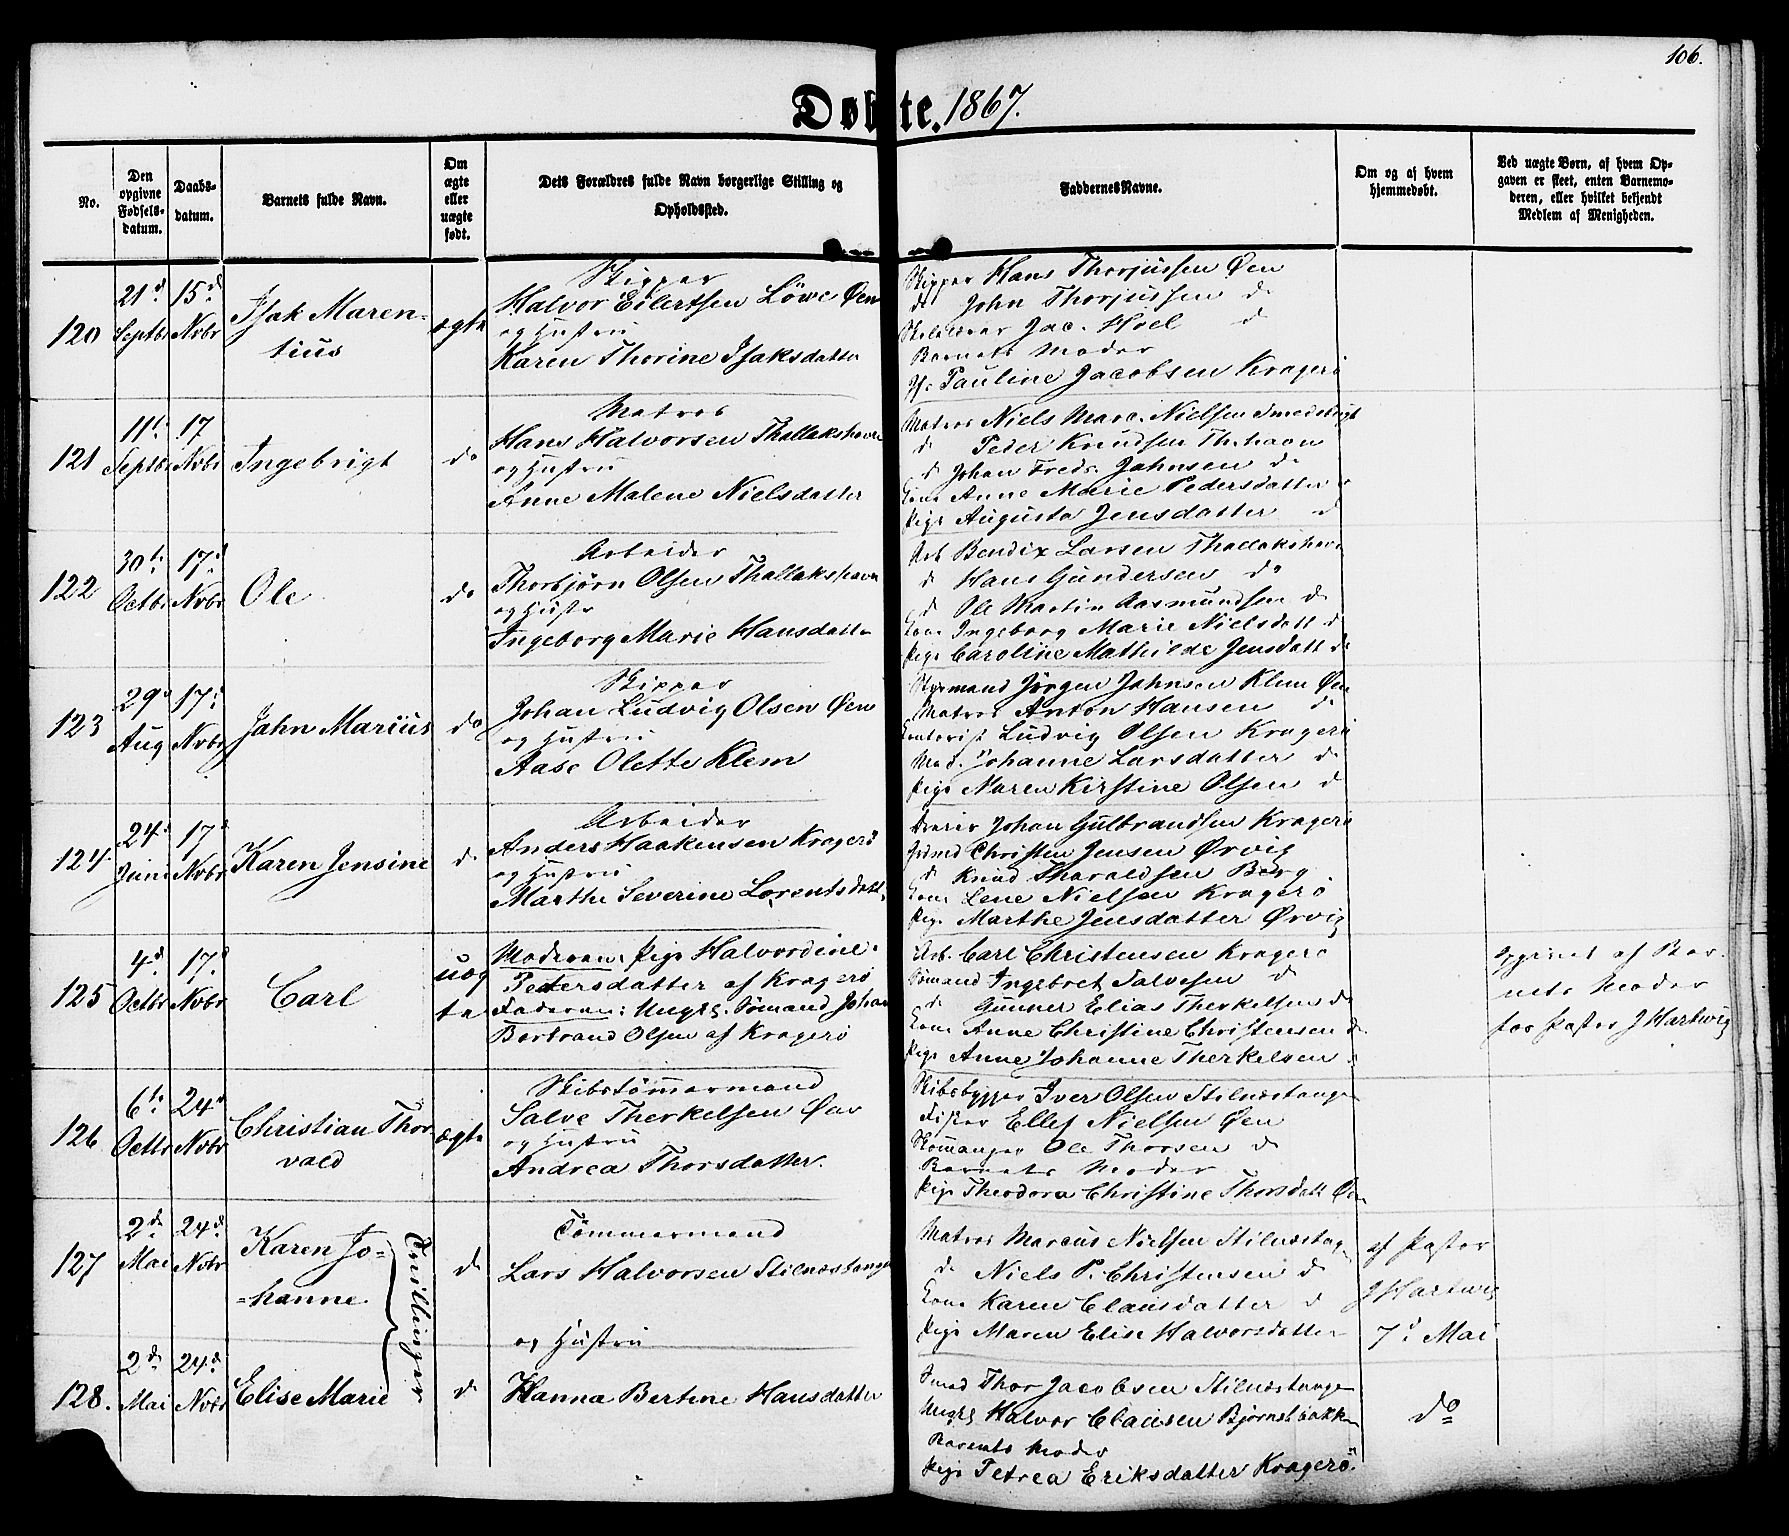 106.
Døbte. 1867.
No.
Den opgivne Fødsels-datum.
Daabs-datum.
Barnets fulde Navn.
Om ægte eller uægte født.
Dets Forældres fulde Navn borgerlige Stilling og Opholdssted.
Faddernes Navne.
Om og af hvem hjemmedøbt.
Ved uægte Børn, af hvem Op-
gaven er skeet, enten Barnemo-
deren, eller hvilket bekjendt
Medlem af Menigheden.
120
21d Septbr
15d Nvbr
Isak Maren-
tius
ægte
Skipper
Halvor Eilertsen Löwe Øen
og Hustru
Karen Thorine Isaksdatter
Skipper Hans Thorjussen Øen
do John Thorjussen do
Jac. Hoel do
Barnets Moder
Pauline Jacobsen Kragerö
121
11t Septbr
17 Nvbr
Ingebrigt
do
Matros
Hans Halvorsen Thallakshavn
og Hustru
Anne Malene Nielsdatter
Matros Niels Marc. Nielsen
d Peder Knudsen Th.havn
d Johan Fredr. Jahnsen do
Kone Anne Marie Pedersdatter
Pige Augusta Jensdatter d
122
30te Octbr
17d Nvbr
Ole
do
Arbeider
Thorbjörn Olsen Thallakshavn
og Hustr
Ingeborg Marie Hansdatter
Arb Bendix Larsen Thallakshavn
d Hans Gundersen do
d Ole Martin Aasmundsen do
Kone Ingeborg Marie Nielsdatt d
Pige Caroline Mathilde Jensdatt do
123
29d Aug
17d Nvbr
Jahn Marius
do
Skipper
Johan Ludvig Olsen Øen
og Hustru
Aase Olette Klem
Styrmand Jörgen Jahnsen Klem Øen
Matros Anton Hansen do
Kontorist Ludvig Olsen Kragerö
Mad. Johanne Larsdatter d
Pige Maren Kirstine Olsen d
124
24d Juni
17d Nvbr
Karen Jensine
d
Arbeider
Anders Haakensen Kragerö
og Hustru
Marthe Severine Lorentsdatt
Johan Gulbrandsen Kragerö
Christen Jensen Ørvig
d Knud Tharaldsen Berg
Kone Lene Nielsen Kragerö
Pige Marthe Jensdatter Ørvig
125
4d Octbr
17d Nvbr
Carl
uæg
te
Moderen: Pige Halvordine
Pedersdatter af Kragerö
Faderen: Ungk. Sömand Johan
Bertrand Olsen af Kragerö
Arb. Carl Christensen Kragerö
Sömand Ingebret Salvesen d
d Gunner Elias Therkelsen do
Kone Anne Christine Christensen d
Pige Anne Johanne Therkelsen
Opgivet af Bar-
nets Moder
for Pastor J Hartwig
126
6te Octbr
24d Nvbr
Christian Thor
vald
ægte
Skibstömmermand
Salve Therkelsen Øen
og Hustru
Andrea Thorsdatter.
Skibsbygger Iver Olsen Stilnæstangen
Fisker Ellef Nielsen Øen
Ole Thorsen d
Barnets Moder
Pige Theodora Christine Thorsdatt Øen
127
2d Mai
24d Nvbr
Karen Jo-
-hanne
Tvillinger
d
Tömmermand
Lars Halvorsen Stilnæstangen
og Hustru
Matros Marcus Nielsen Stilnæstang
do Niels P. Christensen d
Kone Karen Clausdatter d
Pige Maren Elise Halvorsdatter
af Pastor
J Hartwig
7d Mai
128.
2d Mai
24d Nvbr
Elise Marie
d
Hanna Bertine Hansdatter
Smed Thor Jacobsen Stilnæstange
Ungk Halvor Clausen Bjørnsbakken
Barnets Moder
Pige Petrea Eriksdatter Kragerö.
do